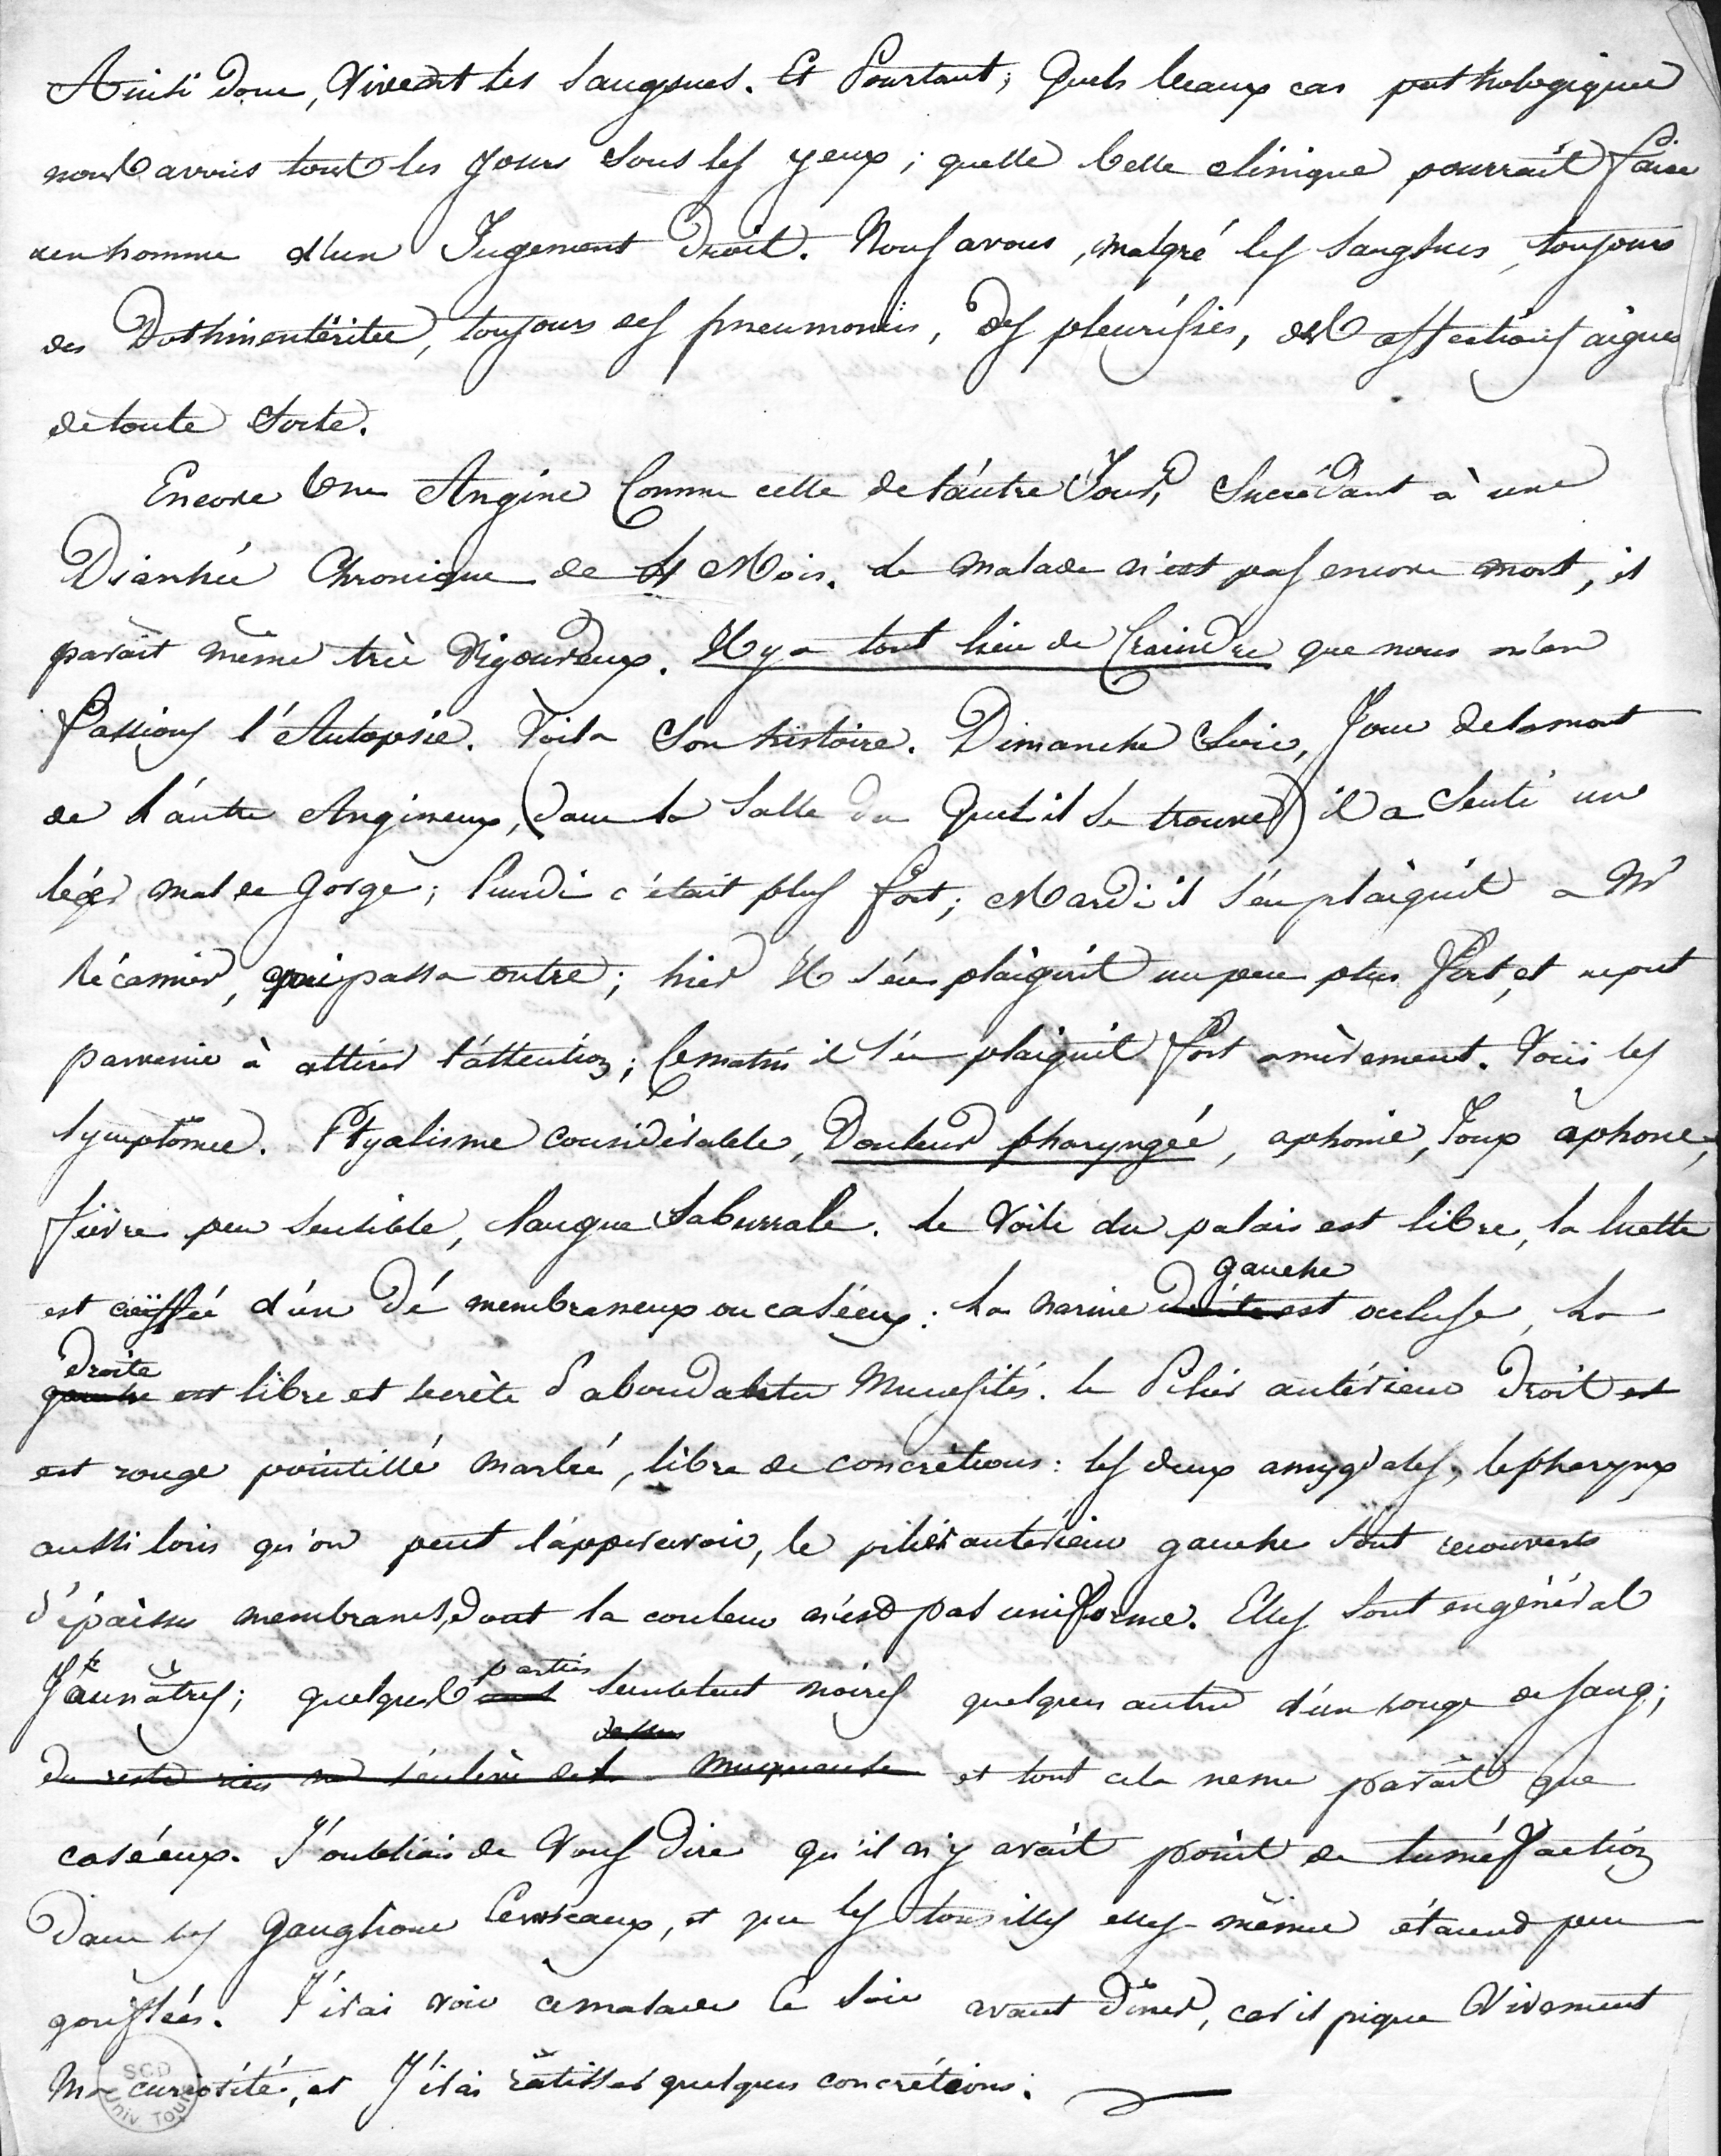 Ainsi donc, Vivent les sangsues. Et Pourtant, Quels beaux cas pathologiques
nous avons tous les jours sous les yeux ; quelle belle clinique pourrait faire
un homme d'un Jugement droit. Nous avons, malgré les sangsues, toujours
des Dothinentérites, toujours des pneumonies, des pleurésies, des affections aigues
de toute sorte.
Encore Une Angine Comme celle de l'autre Jour, Succédant à une
Diarrhée Chronique de 4 Mois. Le malade n'est pas encore mort, il
paraît même très Vigoureux. Il y a tout lieu de Craindre que nous n'en
Fassions l'Autopsie. Voila son histoire. Dimanche Soir, Jour de la mort
de l'autre Angineux, (dans la Salle du Quel il se trouve) il a Senti un
léger mal de Gorge ; Lundi c'était plus fort ; Mardi il s'en plaignit a Mr
Récamier, qui passa outre ; hier Il s'en plaignit un peu plus Fort, et ne put
parvenir à attirer l'attention ; Ce matin il s'en plaignit fort amèrement. Voici les
Symptômes. Ptyalisme considérable, Douleur pharyngée, aphonie, Toux aphone,
fièvre peu sensible, langue Saburrale. Le Voile du palais est libre, la luette
gauche
est coiffée d'un Dé membraneux ou caséeux : La narine droite est occluse, La
droite
gauche est libre et secrète d'abondantes Mucosités. le Pilier antérieur Droit est
est rouge pointillé marbré, libre de concrétions : les deux amygdales, le pharynx
aussi loin qu'on peut l'appercevoir, le pilier antérieur gauche sont recouverts
d'épaisses membranes, dont la couleur n'est pas uniforme. Elles sont en général
parties
Jaunâtres ; quelques semblent noires quelques autres d'un rouge de sang ;
dessus
du reste rien ne s'enlève de la muqueuse et tout cela ne me paraît que
caséeux. J'oubliais de Vous dire qu'il n'y avait point de tuméfaction
Dans les Ganglions Cervicaux, et que les tonsilles elles-mêmes étaient peu
gonflées. J'irai voir ce malade ce soir avant Dîner, car il pique Vivement
Ma curiosité, et J'irai ratisser quelques concrétions.
SCD
Univ. Tours